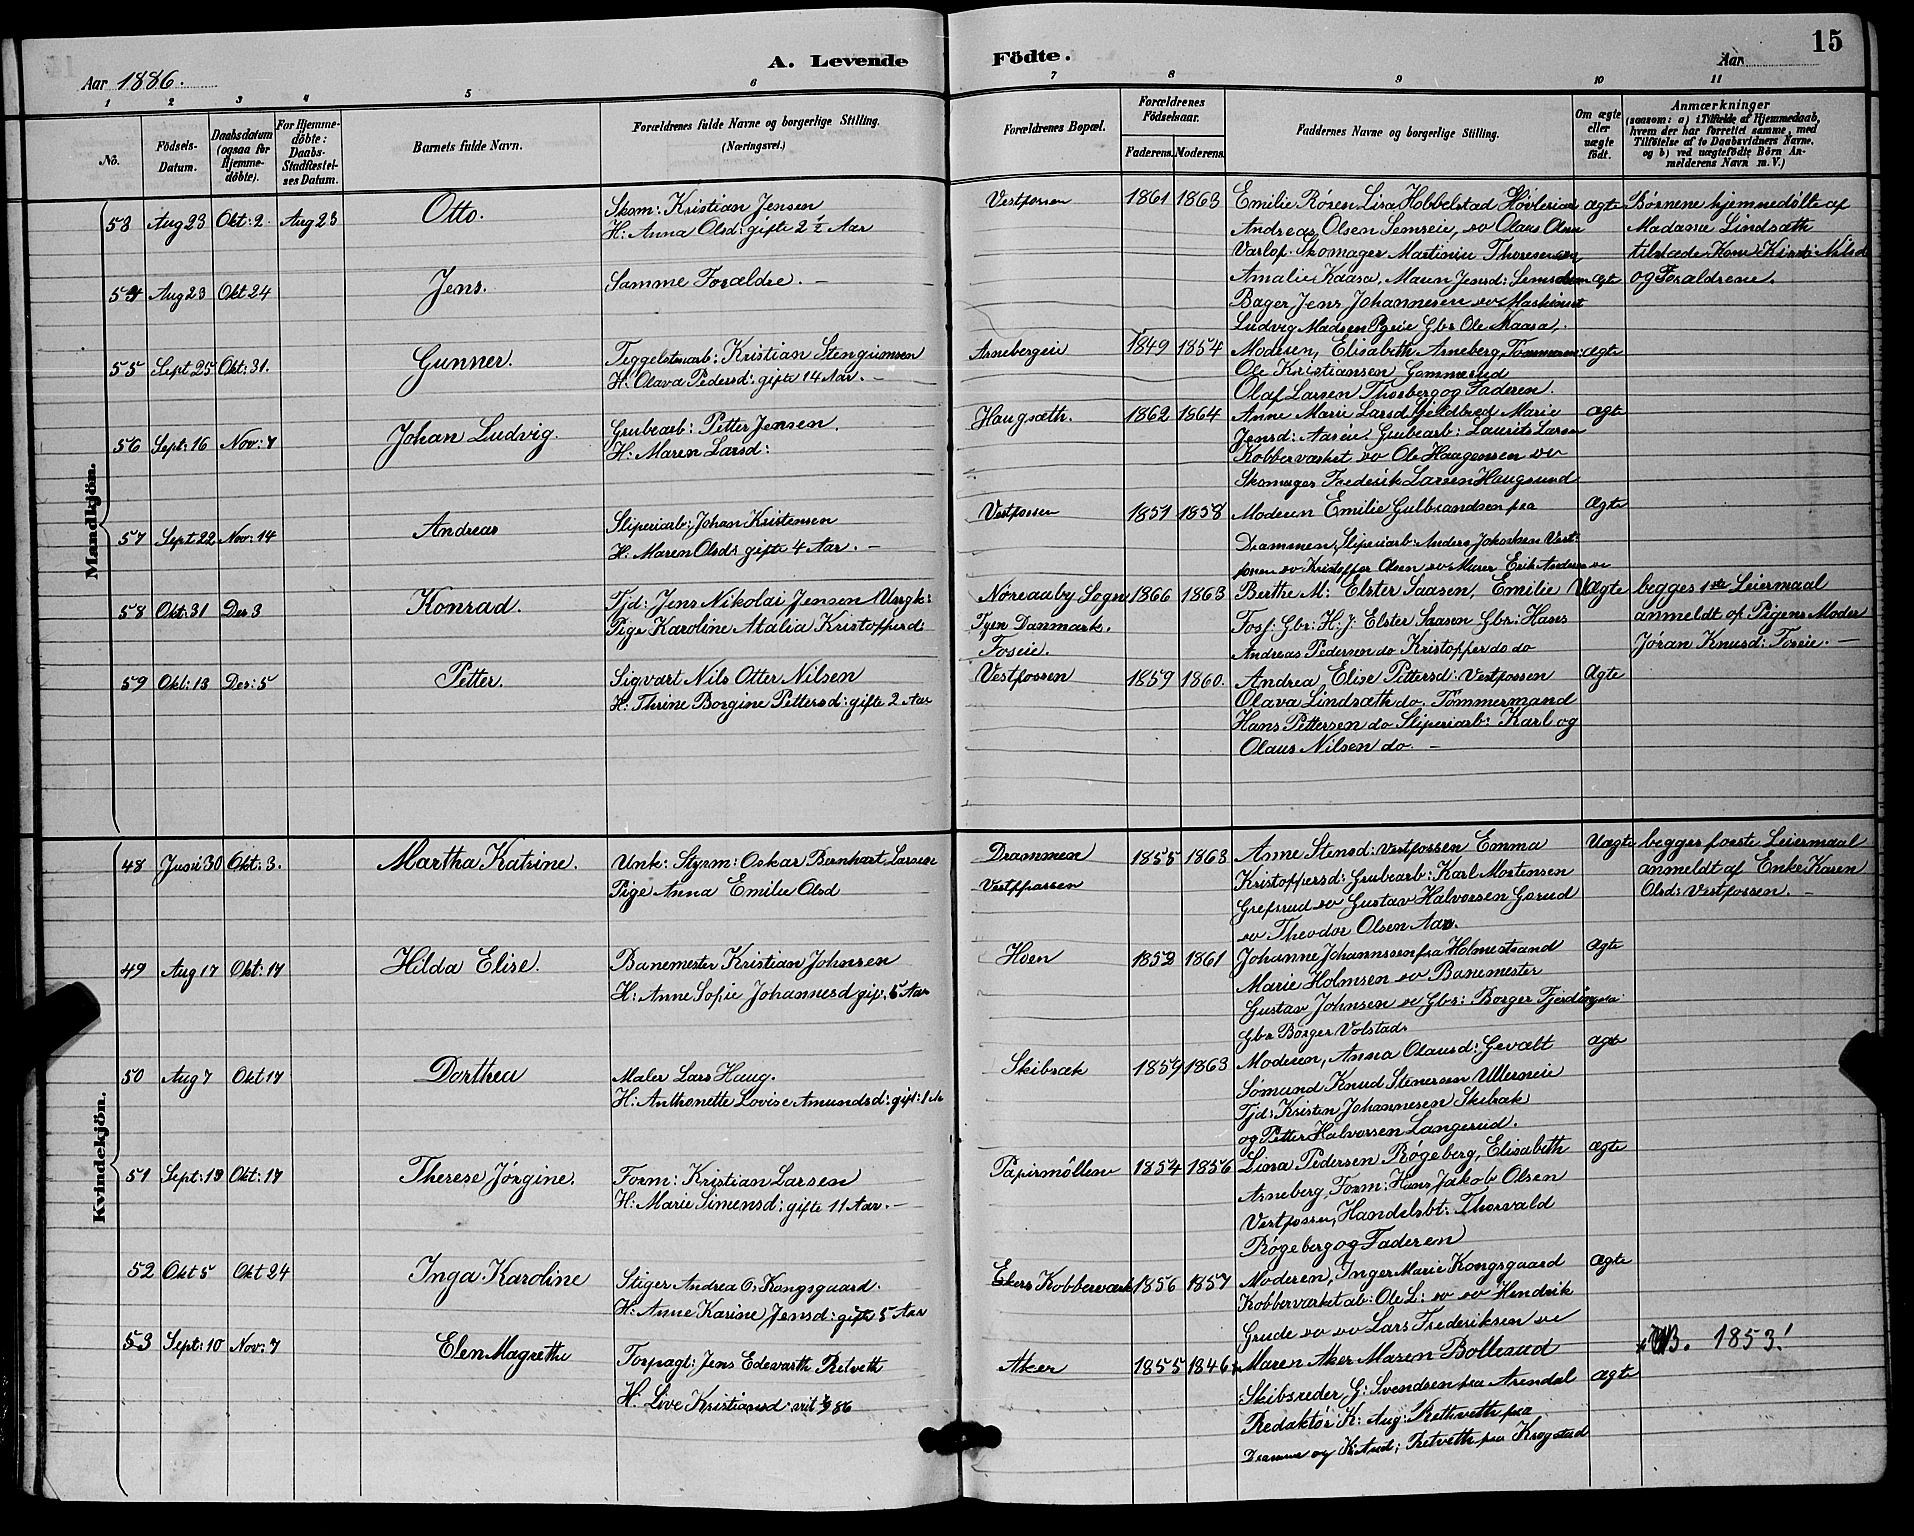 15
Aar 1886.
A. Levende Födte.
Aar
1 2 3 4 5 6 7 8 9 10 11
No.
Födsels-Datum.
Daabsdatum (ogsaa for Hjemme-döbte).
For Hjemme-döbte: Daabs-Stadfæstel-ses Datum.
Barnets fulde Navn.
Forældrenes fulde Navne og borgerlige Stilling.
(Næringsvei.)
Forældrenes Bopæl.
Forældrenes Födselsaar.
Faderens. Moderens.
Faddernes Navne og borgerlige Stilling.
Om ægte eller uægte födt.
Anmærkninger
(saasom: a) i Tilfælde af Hjemmedaab, hvem der har forrettet samme, med Tilföielse af to Daabsvidners Navne, og b) ved uægtefödte Börn Anmelderens Navn m. V.)
Mandkjön.
53 Aug 23 Okt: 2 Aug 23 Otto.
Skom: Kristian Jensen
H: Anna Olsd: gifte 2 1/2 Aar
Vestfossen 1861 1863
Emilie Røren Lisa Hobbelstad
Andreas Olsen Semseie, do Olaus Olsen
Varlof. Skomager Martinin Thoresen
ægte
Børnene hjemmedølte af
Madame Lindsæth
tilstæde Kone
og Forældrene.
54 Aug 23 Okt 24 Jens.
Samme Forældre. —
Amalie Kaasa, Maren Jensd:
Bager Jens Johannesen do Maskinist
Ludvig Madsen Gbr Ole Kaasa.
ægte
55 Sept 25 Okt: 31. Gunner.
Teggelstenarb: Kristian Stengrimsen
H: Olava Pedersd: gifte 14 Aar. —
Arnebergeie 1849 1854
Moderen, Elisabeth Arneberg, Tommerm:
Ole Kristiansen Gommerud
Olaf Larsen Thorberg og Faderen.
ægte
56 Sept: 16 Nov: 7 Johan Ludvig.
Grubearb: Petter Jensen.
H: Maren Larsd:
Haugsæth. 1862 1864
Anne Marie Larsd Marie
Jensd: Aaseie. Grubearb: Laurits Larsen
Kobberværket do Ole Haagensen do
Skomager Frederik Larsen Haugsund
ægte
57 Sept 22 Nov: 14 Andreas
Sliperiarb: Johan Kristensen
H: Maren Olsd: gifte 4 Aar. —
Vestfossen 1857 1858
Moderen Emilie Gulbrandsen fra
Drammen, Sliperiarb: Anders Jakobsen Vest:
fossen do Kristoffer Olsen do Murer Erik Andersen do
Ægte
58 Okt: 31 Des 3 Konrad.
Tjd: Jens Nikolai Jensen Ungk:
Pige Karoline Atalia Kristoffersd:
Nøreaaby Sogn
Fyen Danmark.
Foseie.
1866 1863
Berthe M: Elster Saasen, Emilie
Fos/: Gbr: H. J. Elster Saasen Gbr: Hans
Andreas Pedersen do Kristoffer do do
Uægte
begges 1ste Leiermaal
anmeldt af Pigens Moder
Jöran Knusd: Foseie. —
59 Okt: 13 Des: 5 Petter.
Sigvart Nils Otter Nilsen
H: Thrine Borgine Pettersd: gifte 2 Aar
Vestfossen 1859 1860.
Andrea Elise Pittersd: Vestfossen
Olava Lindsæth do. Tömmermand
Hans Pettersen do Sliperiarb: Karl og
Olaus Nilsen do. —
Ægte
Kvindekjön.
48 Juni 30 Okt: 3. Martha Katrine.
Unk: Styrm: Oskar Bernhart Larsen
Pige Anna Emilie Olsd
Drammen
Vestfossen
1855 1863
Anne Stensd: Vestfossen Emma
Kristoffersd: Grubearb: Karl Mortensen
Grefsrud do Gustav Halvorsen Gorud
do Theodor Olsen Aas.
Uægte
begges forste Leiermaal
anmeldt af Enke Karen
Olsd: Vestfossen. —
49 Aug 17 Okt: 17 Hilda Elise.
Banemester Kristian Johnsen
H: Anne Sofie Johannesd gift. 5 Aar
Hoen 1852 1861
Johanne Johannssen fra Holmestrand
Marie Holmsen do Banemester
Gustav Johnsen do Gbr: Borger
Gbr Borger Volstad
ægte
50 Aug 7 Okt 17 Dorthea
Maler Lars Haug.
H: Anthonette Lovise Amundsd: gift: 1 Ar
Skibsæk 1859 1863
Moderen, Anna Olausd: Gevælt
Sømund Knud Stenersen Ullerneie
Tjd: Kristen Johannesen Skibak
og Petter Halvorsen Langerud.
ægte
51 Sept: 13 Okt: 17 Therese Jörgine.
Form: Kristian Larsen
H: Marie Simensd: gifte 11 Aar. —
Papirmøllen 1854 1856
Lina Pedersen Røgeberg, Elisabeth
Arneberg, Form: Hans Jakob Olsen
Vestfossen, Handelsbt: Thorvald
Røgeberg og Faderen
ægte
52 Okt 5 Okt 24 Inga Karoline
Stiger Andrea O: Kongsgaard.
H: Anne Karine Jensd: gifte 5 Aar
Ekers Kobberværk 1856 1857
Moderen, Inger Marie Kongsgaard
Kobberværket ab: Ole L: do do Hendrik
Grude do do Lars Frederiksen do
ægte
53 Sept: 10 Nov: 7 Elen Magrethe
Forpagt: Jens Edevarth Retveth
H: Live Kristiansd:
Aker 1855 1846
Maren Aker Maren Bollerud
Skibsreder G: Svendsen fra Arendal
Redaktør K: Aug: Rethveth fra
Dramme og Knud: Retveth fra Krogstad
ægte
NB. 1853!